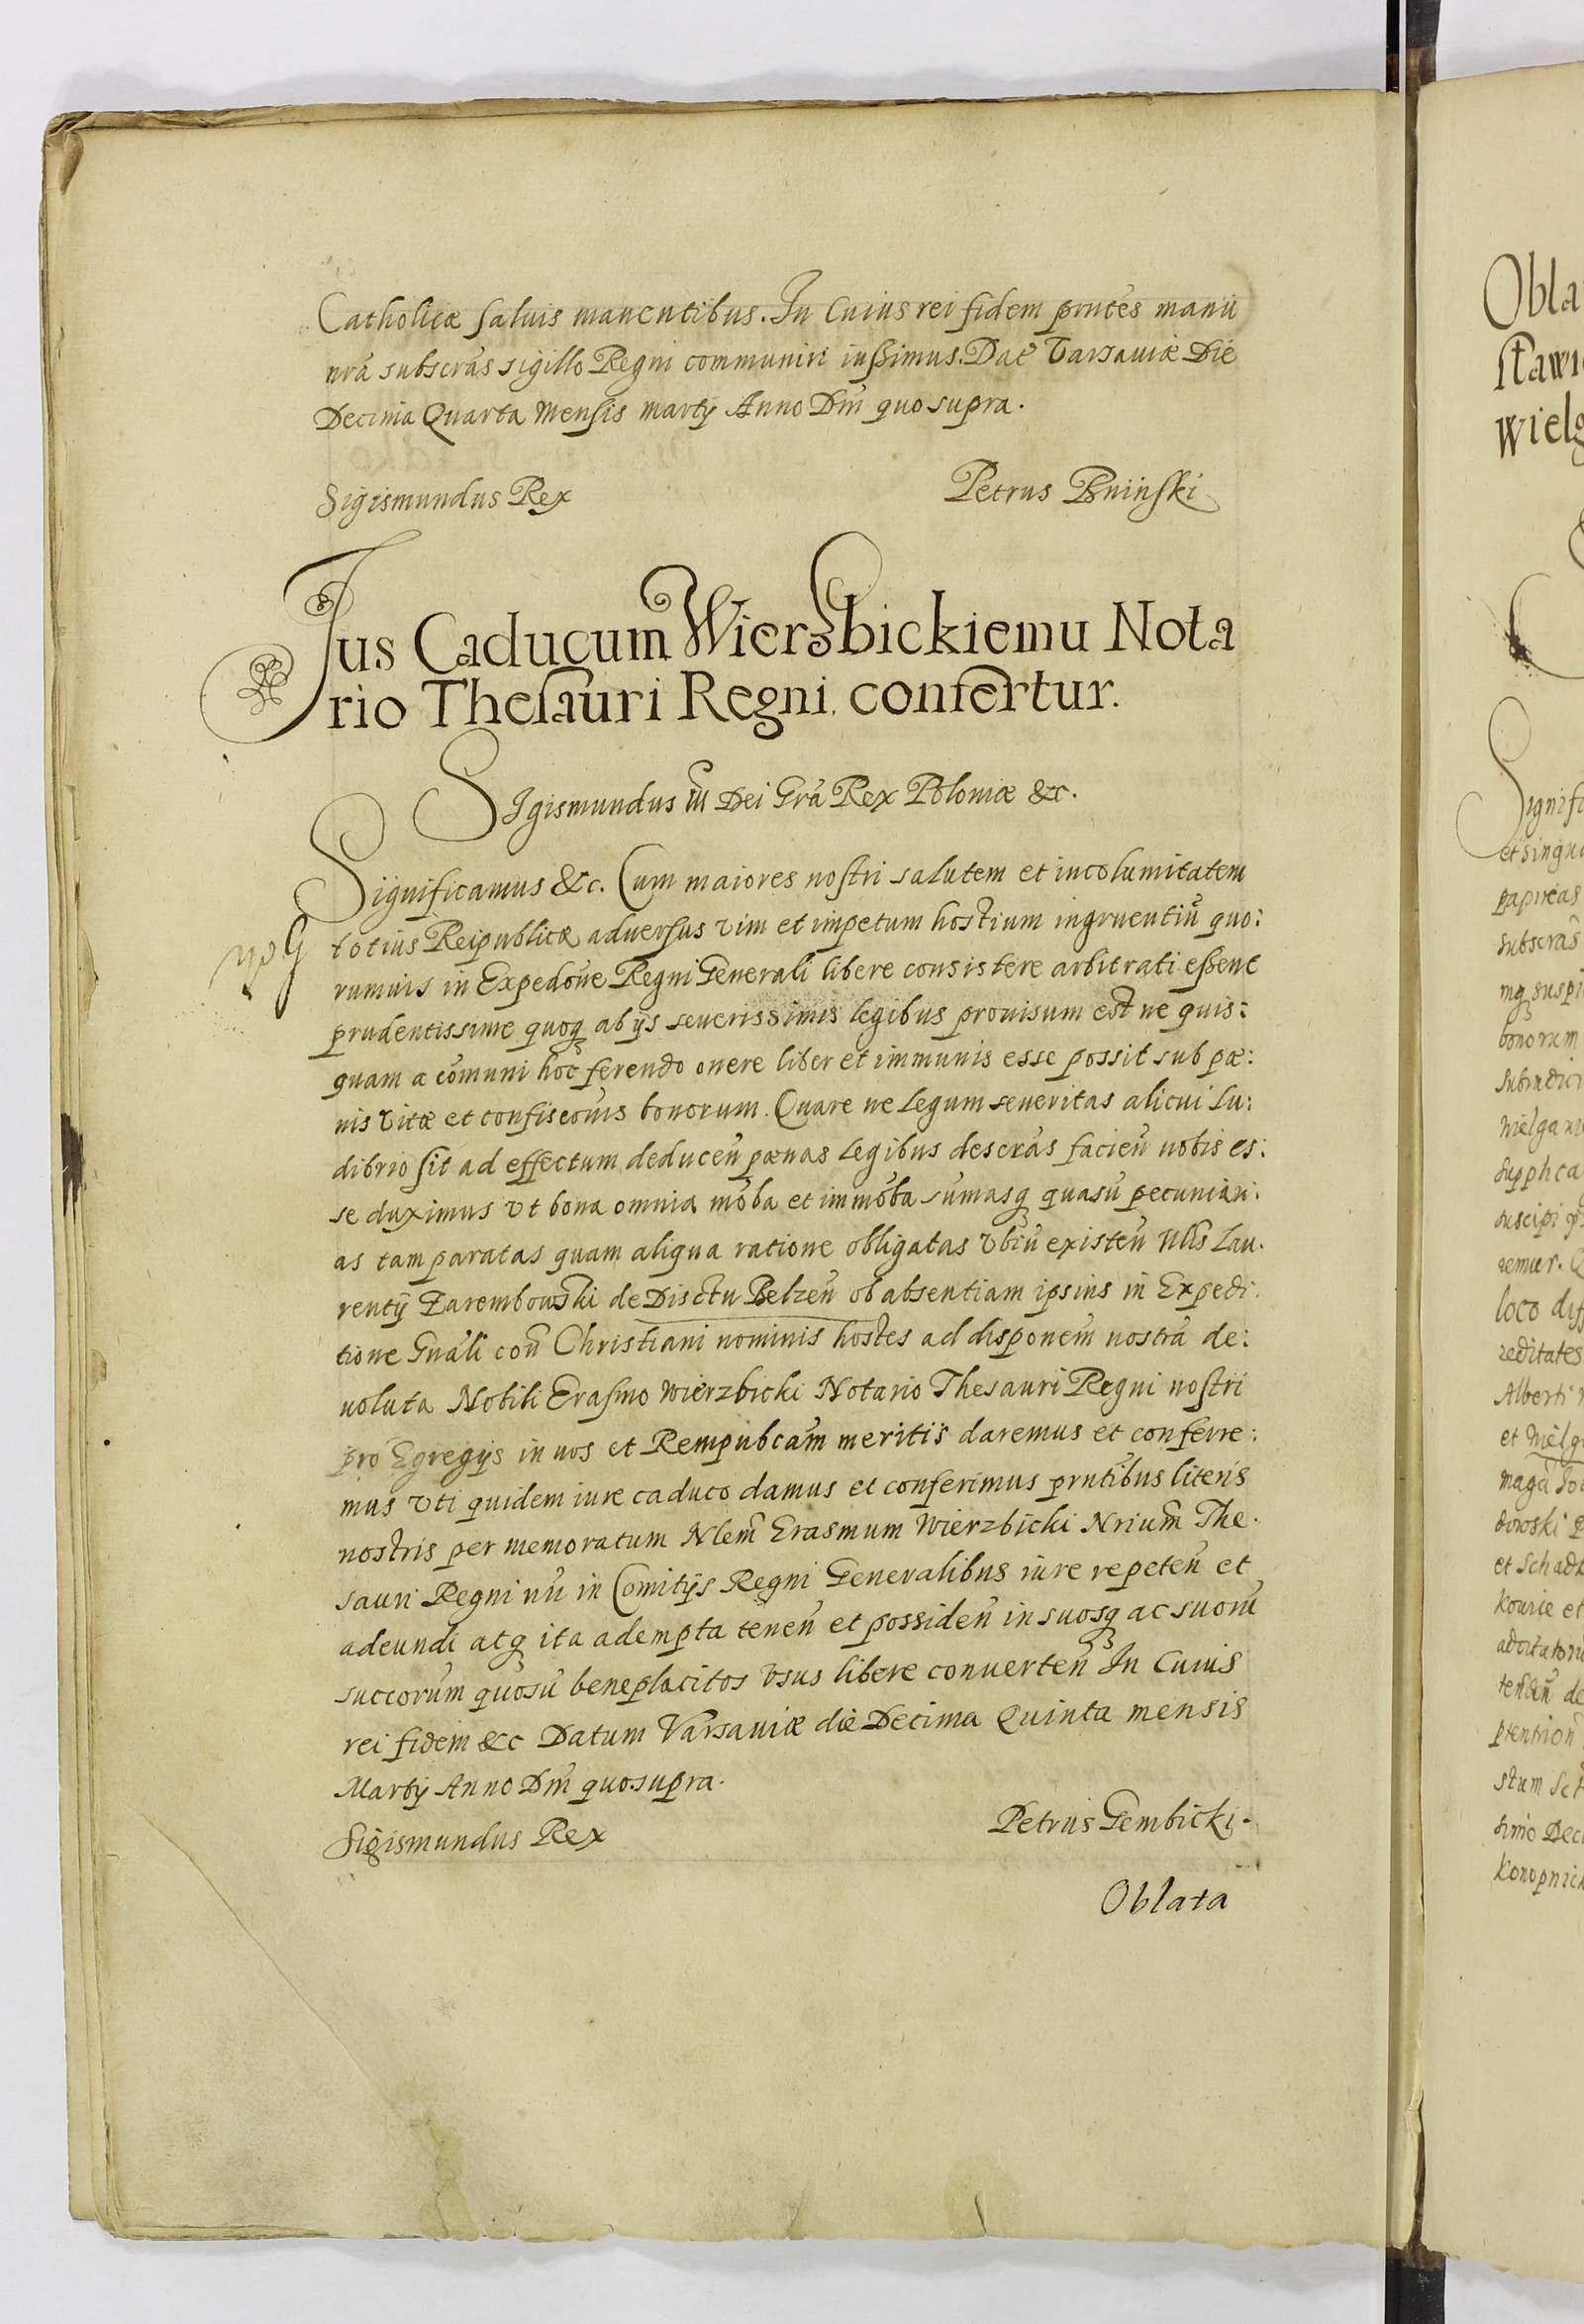 Catholicæ saluis manentibus. In Cuius rei fidem prntes manu
nrã subscras sigillo Regni communiri iussimus. Dat Varsauiæ Die
Decima Quarta Mensis Martij Anno Dni quo supra.
Sigismundus Rex
Petrus Bninski
Ius Caducum Wierzbickiemu Nota
rio Thesauri Regni confertur.
SIgismundus III Dei Grã Rex Poloniæ &c.
Significamus &c. Cum maiores nostri salutem et incolumitatem
totius Reipublicæ aduersus vim et impetum hostium ingruentiũ quo:
rumuis in Expedõne Regni Generali libere consistere arbitrati essent
prudentissime quoq abijs seuerissimis legibus prouisum est ne quis:
quam a cõmuni hoc ferendo onere liber et immunis esse possit sub pæ:
nis vitæ et confiscõnis bonorum. Quare ne legum seueritas alicui lu:
dibrio sit ad effectum deduceñ pænas legibus descras facieñ nobis es:
se duximus vt bona omnia mõba et immõba sumasq quasũ pecuniari:
as tam paratas quam aliqua ratione obligatas vbiũ existeñ Nlis Lau:
rentij Zarembowski de Disctu Belzeñ ob absentiam ipsius in Expedi:
tione Gnãli coñ Christiani nominis hostes ad disponem nostrã de:
uoluta Nobili Erasmo Wierzbicki Notario Thesauri Regni nostri
pro Egregijs in nos et Rempubcam meritis daremus et conferre:
mus vti quidem iure caduco damus et conferimus prntibus literis
nostris per memoratum Nlem Erasmum Wierzbicki Nrium The:
sauri Regni nri in Comitijs Regni Generalibus iure repeteñ et
adeundi atq ita adempta teneñ et possideñ in suosq ac suorũ
succorum quosũ beneplacitos vsus libere conuerteñ In Cuius
rei fidem &c Datum Varsauiæ die Decima Quinta mensis
Martij Anno Dni quo supra.
Sigismundus Rex
Petrus Gembicki.
Oblata